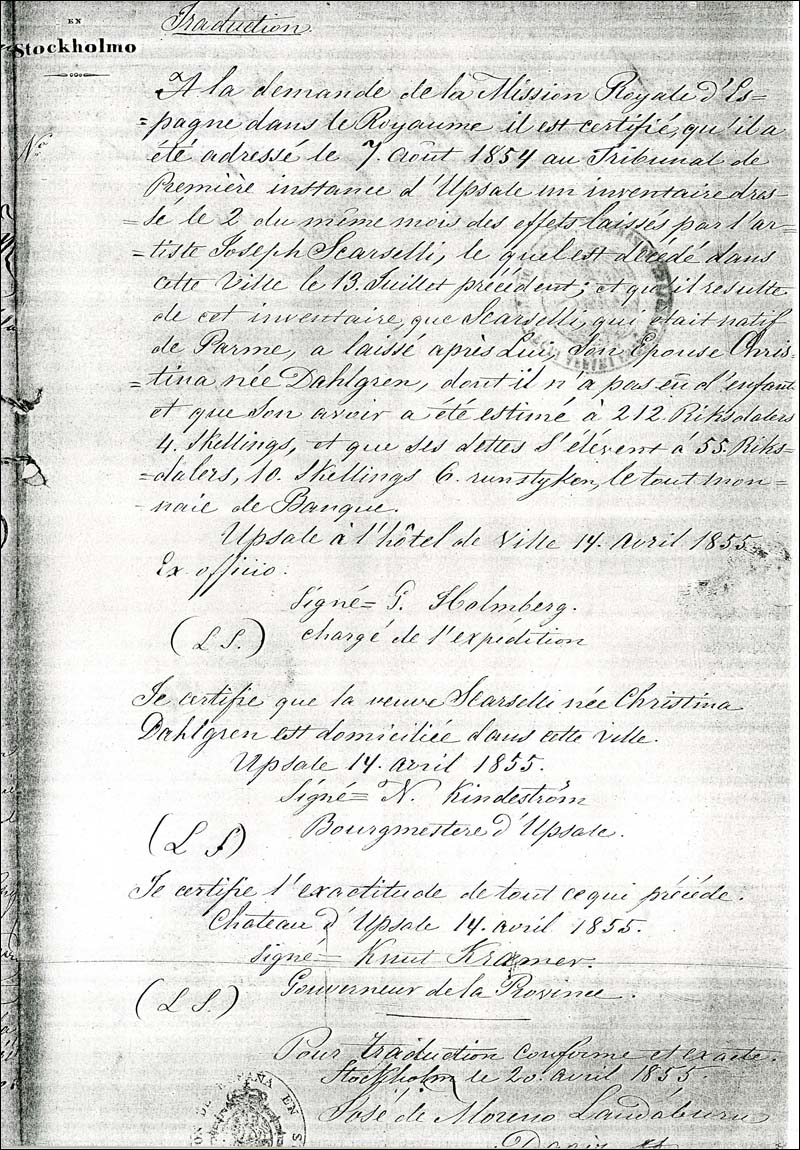 EN
Stockholmo
Traduction.
Nº
A la demande de la Mission Royale d'Es=
=pagne dans le Royaume il est certifié, qu'il a
été adressé le 7. Août 1854 au Tribunal de
Première instance d'Upsale un inventaire dres=
=sé le 2 du même mois des effets laissés par l'ar=
=tiste Joseph Scarselli, le quel est décédé dans
cette Ville le 13. Juillet précédent; et qu'il resulte
de cet inventaire, que Scarselli, qui était natif
de Parme, a laissé après Lui, Son Epouse Chris=
=tina née Dahlgren, dont il n'a pas eû d'enfant
et que Son avoir a été estimé à 212. Riksdalers
4. Skellings, et que ses dettes s'élèvent à 55. Riks=
=dalers, 10. Skellings 6. runstyken, le tout mon=
=naie de Banque.
Upsale à l'hôtel de Ville 14. Avril 1855.
Ex officio.
Signé= G. Holmberg.
(L S.) chargé de l'expédition
Je certifie que la veuve Scarselli née Christina
Dahlgren est domiciliée dans cette ville.
Upsale 14. avril 1855.
Signé= N. Kindeström
(L S) Bourgmestere d'Upsale.
Je certifie l'exactitude de tout ce qui précède.
Chateau d'Upsale 14. avril 1855.
Signé= Knut Kramer.
(L S.) Gouverneur de la Province.
Pour traduction conforme et exacte.
Stockholm le 20. avril 1855
José de Moreno Landaburu
DE ESPAÑA EN S